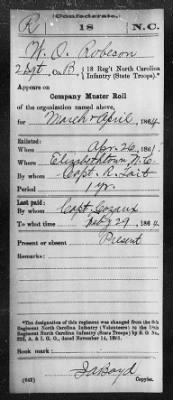 Confederate.
R 18 N.C.
W. O. Robeson
2 Sgt, Co. B, 18 Reg't North Carolina
Infantry (State Troops).*
Appears on
Company Muster Roll
of the organization named above,
for March & April, 1864.
Enlisted:
When Apr. 26, 1861.
Where Elizabethtown, N.C.
By whom Capt. R. Tait
Period 1 yr.
Last paid:
By whom Capt.
To what time Feby 29, 1864.
Present or absent Present
Remarks:
*The designation of this regiment was changed from the 8th
Regiment North Carolina Infantry (Volunteers) to the 18th
Regiment North Carolina Infantry (State Troops) by S. O. No.
222, A. & I. G. O., dated November 14, 1861.
Book mark:
(642) Copyist.